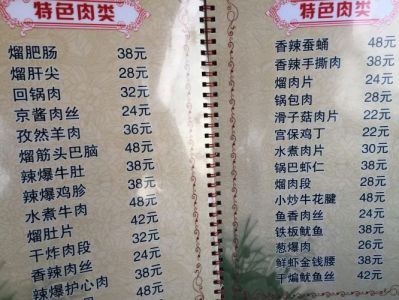 特色肉类
熘肥肠 38元
熘肝尖 28元
回锅肉 32元
京酱肉丝 24元
孜然羊肉 36元
熘筋头巴脑 48元
辣爆牛肚 38元
辣爆鸡胗 38元
水煮牛肉 42元
熘肚片 32元
干炸肉段 24元
香辣肉丝 38元
辣爆护心肉 48元
42元
特色肉类
香辣蚕蛹 48元
香辣手撕肉 38元
熘肉片 24元
锅包肉 28元
滑子菇肉片 22元
宫保鸡丁 22元
水煮肉片 30元
锅巴虾仁 38元
熘肉段 28元
小炒牛花腱 48元
鱼香肉丝 24元
铁板鱿鱼 38元
葱爆肉 26元
鲜虾金钱腰 38元
干煸鱿鱼丝 42元